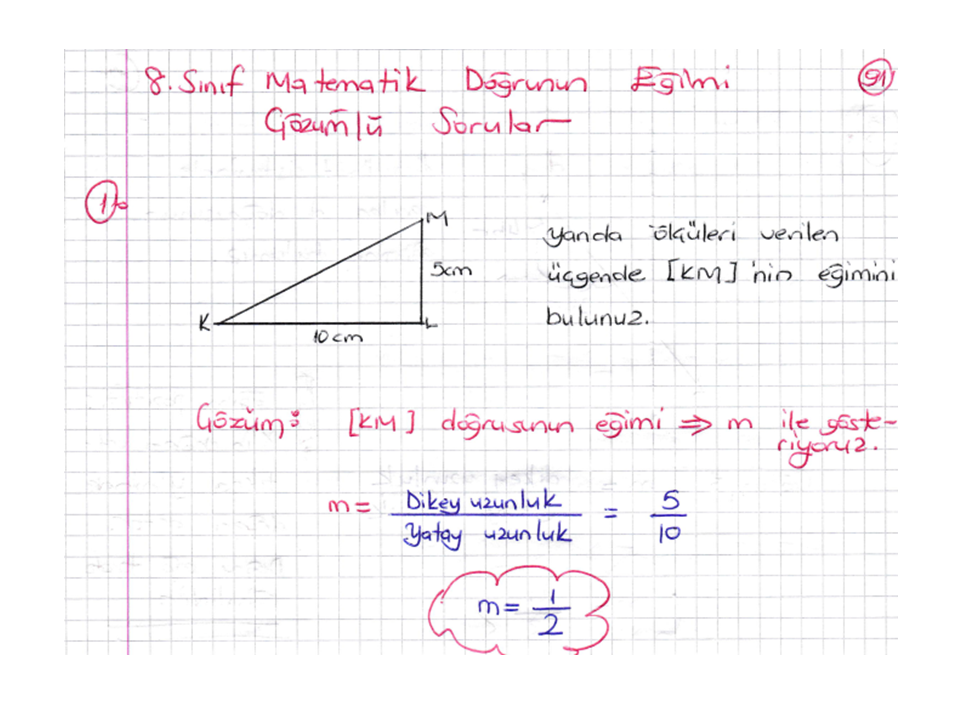 8. Sınıf Matematik Doğrunun Eğimi 91
Çözümlü Sorular
1.
M
yanda ölçüleri verilen
5cm
üçgende [KM]'nin eğimini
K
L
bulunuz.
10cm
Çözüm: [KM] doğrusunun eğimi ⇒ m ile göste-
riyoruz.
m = Dikey uzunluk / Yatay uzunluk = 5 / 10
m = 1 / 2